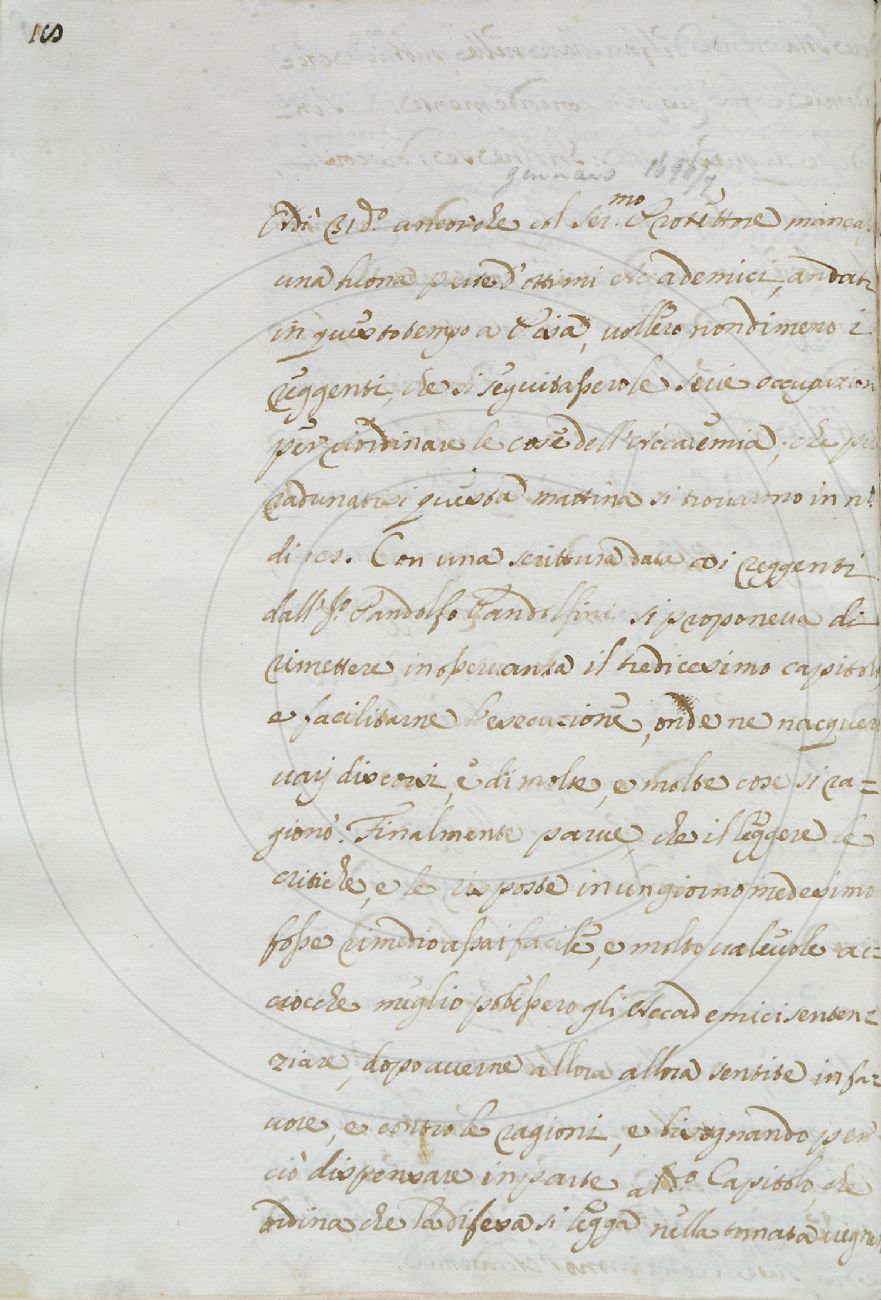 gennaro 1696/7
Adì 31 d.º ancorche col Ser.mo Protettore manca
una buona parte d'ottimi Accademici, andati
in questo tempo a Pisa, vollero nondimeno i
Reggenti, che si seguitassero le serie occupazion
per riordinare le cose dell'Accademia, che per
radunatisi questa mattina si trovarono in n.º
di 10. Con una scrittura data ai Reggenti
dall' S.r Pandolfo Pandolfini si proponeva di
rimettere in osservanza il tredicesimo capitolo,
e facilitarne l'esecuzione, onde ne nacquero
varij discorsi, e di molte, e molte cose si ra=
gionò. Finalmente parve, che il leggere le
critiche, e le risposte in un giorno medesimo
fosse rimedio assai facile, e molto valevole ac=
ciocche meglio potessero gli Accademici senten=
ziare, dopo averne allora allora sentite in fa=
vore, e contro le ragioni, e bisognando per
ciò dispensare in parte al d.º Capitolo che
ordina che la difesa si legga nella tornata